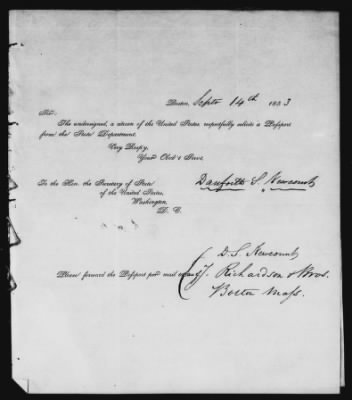 Boston, Septr 14th 1853
Sir.
The undersigned, a citizen of the United States, respectfully solicits a Passport
from the State Department.
Very Respy,
Your Obdt Servt
To the Hon. the Secretary of State
of the United States,
Washington,
D. C.
Danforth S. Newcomb
D. S. Newcomb
Please forward the Passport per mail
J. Richardson & Bros.
Boston Mass.